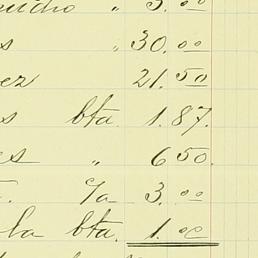 " 5.00
s " 30.00
ez 21.50
s bta. 1.87.
es " 6 50.
. %a 3.00
la bta. 1.00